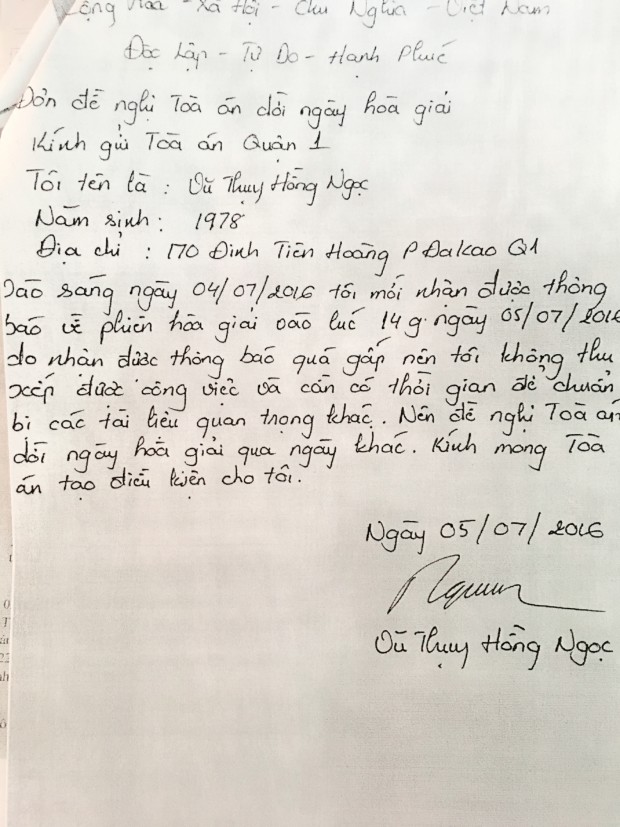 Cộng Hoà - Xã Hội - Chủ Nghĩa - Việt Nam
Độc Lập - Tự Do - Hạnh Phúc
Đơn đề nghị Toà án dời ngày hoà giải
Kính gửi Toà án Quận 1
Tôi tên là : Vũ Thụy Hồng Ngọc
Năm sinh : 1978
Địa chỉ : 170 Đinh Tiên Hoàng P Đakao Q1
Vào sáng ngày 04/07/2016 tôi mới nhận được thông
báo về phiên hòa giải vào lúc 14g. ngày 05/07/2016
do nhận được thông báo quá gấp nên tôi không thu
xếp được công việc và cần có thời gian để chuẩn
bị các tài liệu quan trọng khác. Nên đề nghị Toà án
dời ngày hoà giải qua ngày khác. Kính mong Toà
án tạo điều kiện cho tôi.
Ngày 05/07/2016
Vũ Thụy Hồng Ngọc